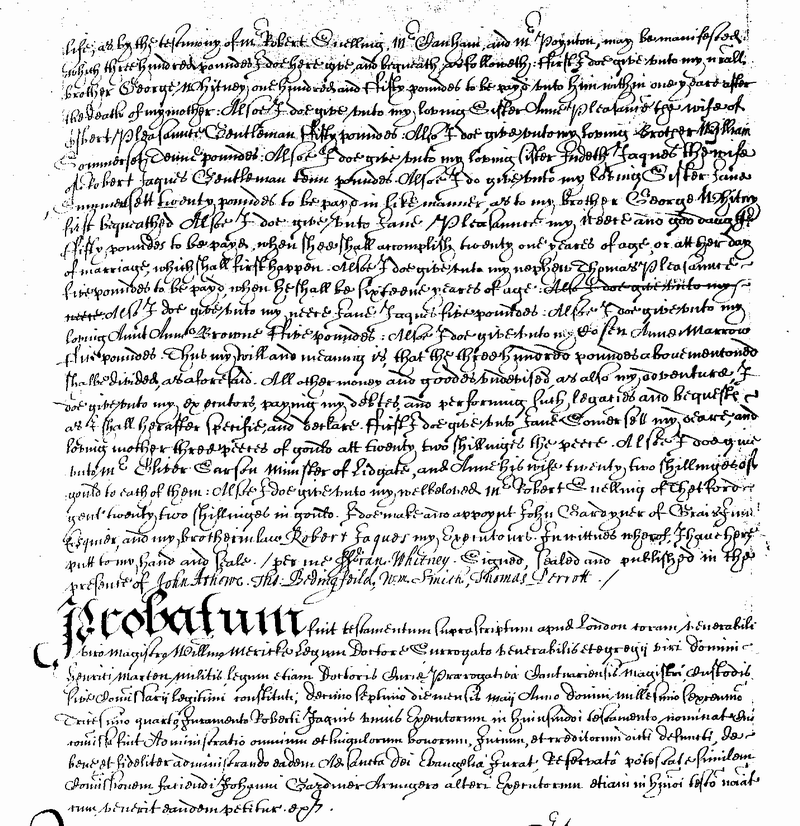 life, as by the testimony of Mr Robert Snelling, Mr Canham, and Mr Poynton, may be manifested
which three hundred poundes I doe here give and bequeath, as followeth: ffirst I doe give unto my
brother George Whitney, one hundred and ffifty poundes to be payd unto him within one yeare after
the death of my mother: Alsoe I doe give unto my loving Sister Anne Pleasance the wife of
Robert Pleasance Gentleman ffifty poundes: Also I doe give unto my loving Brother William
Sommersett Tenne poundes: Alsoe I doe give unto my loving sister Judeth Jaques the wife
of Robert Jaques Gentleman tenn poundes Alsoe I do give unto my loving Sister Jane
Summersett twenty poundes to be payd in like manner, as to my brother George Whitney
first bequeathed Alsoe I doe give unto Jane Pleasaunce my Neece and god daughter
ffifty poundes to be payd, when shee shall accomplish twenty one yeares of age, or at her day
of marriage, which shall first happen. Also I doe give unto my nephew Thomas Pleasaunce
five poundes to be payd, when he shall be sixteene yeares of age: Also I doe give unto my
neece Also I doe give unto my neece Jane Jaques five poundes: Alsoe I doe give unto my
loving Aunt Anne Browne ffive poundes: Alsoe I doe give unto my Cosen Anne Marrow
ffive poundes. Thus my will and meaning is, that the three hundred poundes above mentoned
shalbe divided, as aforesaid. All other money and goodes undevised as also my adventures, I
doe give unto my executors, paying my debtes, and performing such legacies and bequestes
as I shall hereafter specifie, and declare. ffirst I doe give unto Jane Somersett my deare, and
loving mother three peeces of gould att twenty two shillinges the peece. Alsoe I doe give
unto Mr Oliver Carson Minister of Lidgate, and Anne his wife twenty, two shillinges of
gould to each of them: Alsoe I doe give unto my welbeloved Mr Robert Snelling of Thetford
gent twenty, two shillinges in gould. I doe make and appoynt John Gardyner of
Esquier, and my brother in law Robert Jaques my Executours. In wittnes whereof, I have here
putt to my hand and Seale. / per me ffran: Whitney. Signed, sealed and published in the
presence of John Athowe, Tho: Bedingfeild, Wm Smith, Thomas Perrott. /
Probatum fuit testamentum suprascriptum apud London coram venerabili
viro Magistro Willmo Mericke Legum Doctore Surrogato venerabilis et egregij viri domini
Henrici Marten militis legum etiam Doctoris Curie Prærogative Cantuariensis Magistri Custodis
sive Comissarij legitime constituti, decimo septimo die mensis Maij Anno Domini millesimo sexcentmo
Tricesimo quarto Juramento Roberti Jaques unius Executorum in huiusmodi testamento nominat Cui
comissa fuit Administratio omnium et singulorum bonorum, Jurium, et creditorum dicti defuncti, de
bene et fideliter administrando eadem Ad sancta Dei Evangelia Jurat Reservatâ potestate similem
Comissionem faciendi Johanni Gardiner Armigero alteri Executorum etiam in hmoi testo noiat
cum venerit eandem petitur. exp.